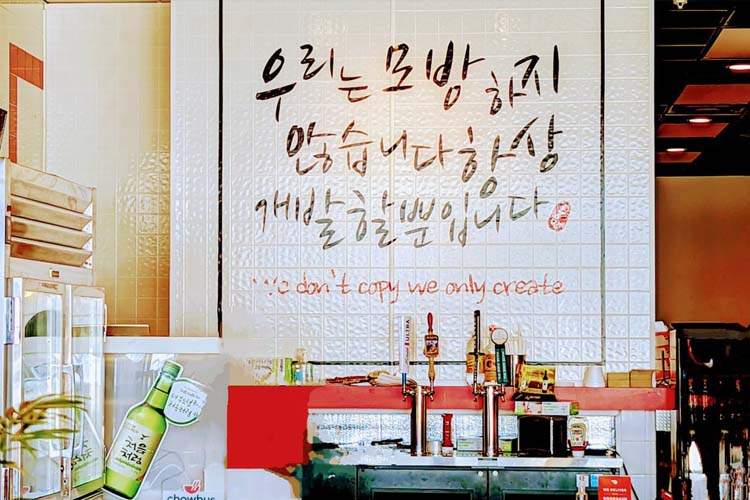 우리는 모방하지
않습니다 항상
개발할 뿐입니다
We don't copy we only create
ULTRA
처음
처럼
chowbus
WE DELIVER